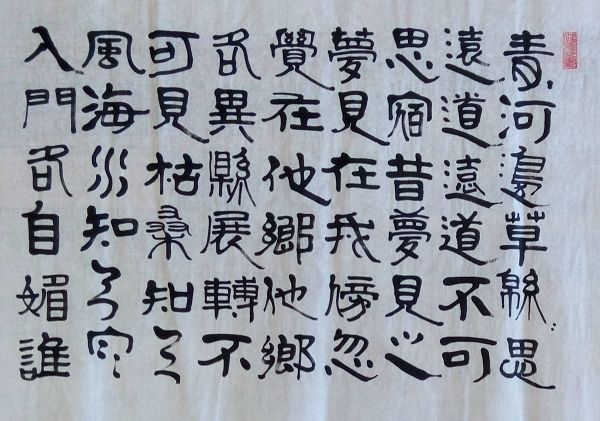 青〻河邊草緜〻思
遠道遠道不可
思宿昔夢見之
夢見在我傍忽
覺在他鄉他鄉
各異縣展轉不
可見枯桑知天
風海水知天寒
入門各自媚誰